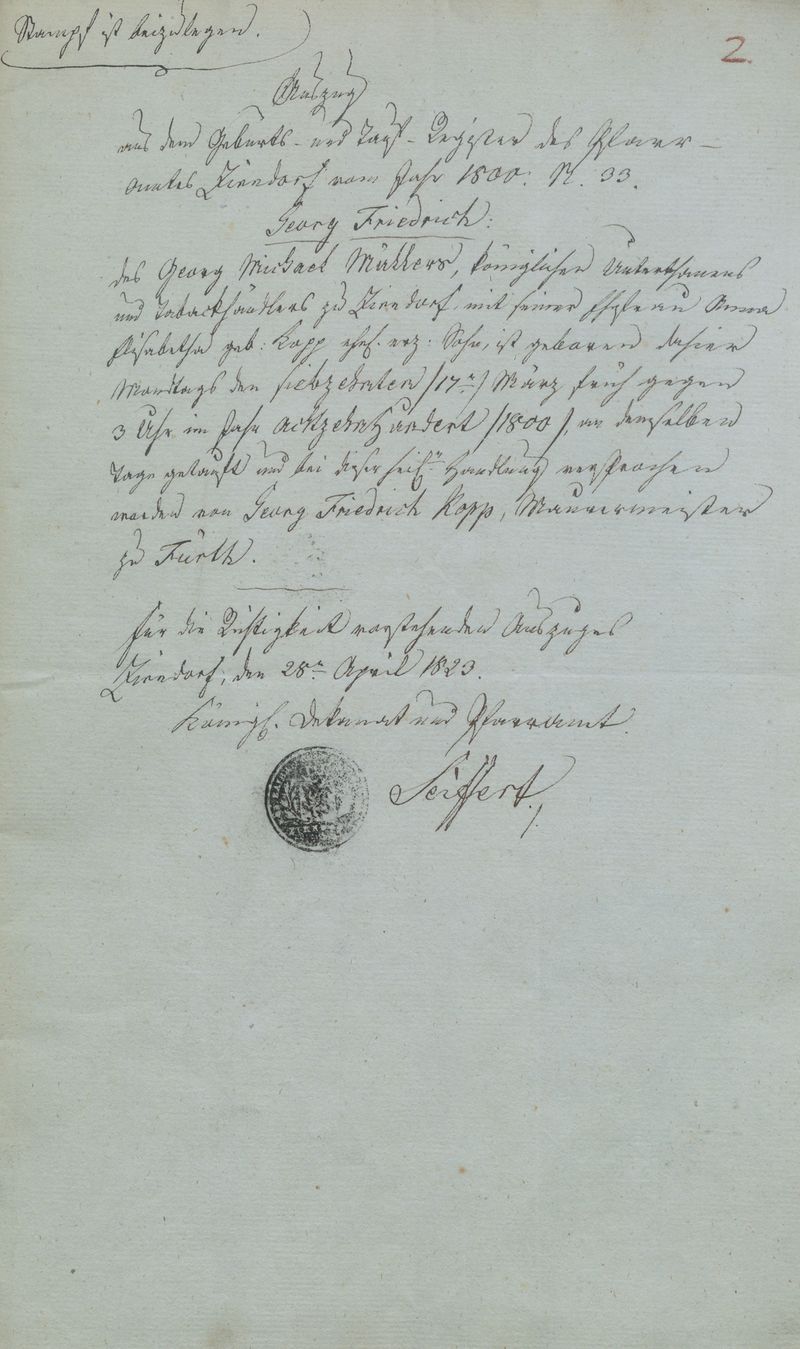 Stempf ist beizulegen.
2.
Auszug
aus dem Geburts- und Tauf-Register des Pfarr-
amtes Zirndorf vom Jahr 1800. N. 33.
Georg Friedrich:
des Georg Michael Müllers, königlichen Unterthanens
und Tabackhändlers zu Zirndorf, mit seiner Ehefrau Anna
Elisabetha geb: Kopp ehel. erz: Sohn, ist geboren dahier
Mondtags den siebzehnten /17n/ März früh gegen
3 Uhr im Jahr achtzehnhundert /1800/, an demselben
Tage getauft und bei dieser heil. Handlung versprochen
worden von Georg Friedrich Kopp, Maurermeister
zu Fürth.
Für die Richtigkeit vorstehenden Auszuges
Zirndorf, den 28n April 1823.
Königl. Dekanat und Pfarramt.
Seiffert.